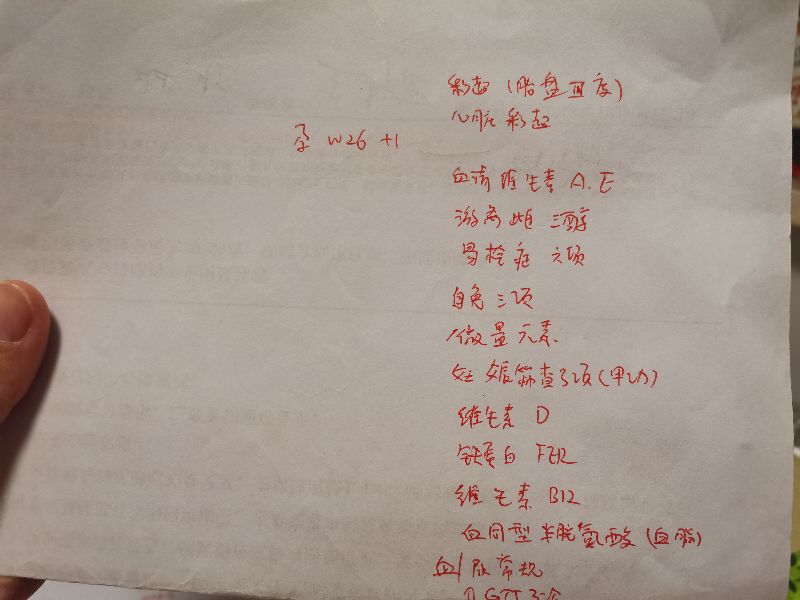 彩超（胎盘回度）
心脏彩超
孕 W26 +1
血清维生素 A.E
游离雌三醇
易栓症 六项
自免三项
微量元素
妊娠筛查3项(甲功)
维生素 D
铁蛋白 FER
维生素 B12
血同型半胱氨酸 (血脂)
血/尿常规
OGTT 3次